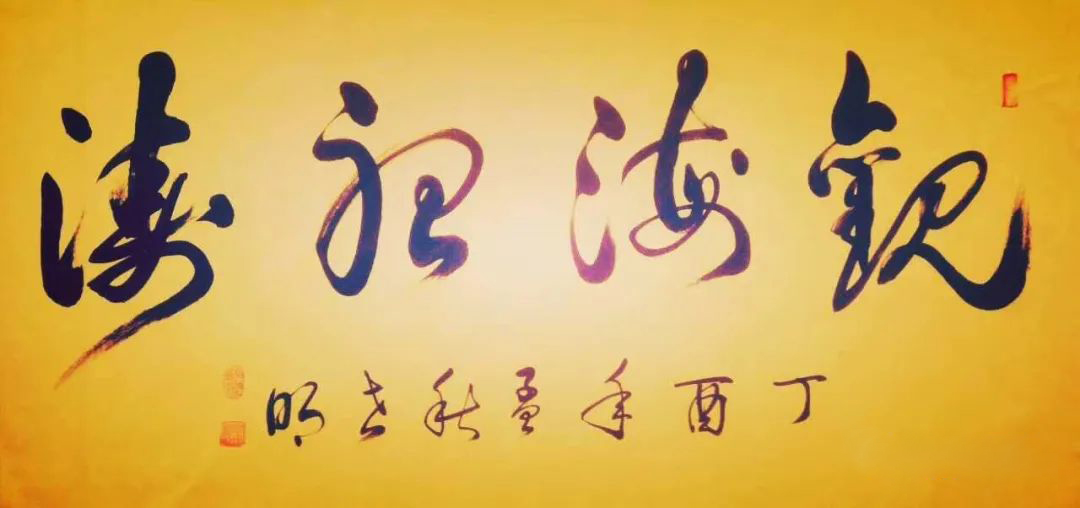 觀海聽濤
丁酉年孟秋世明